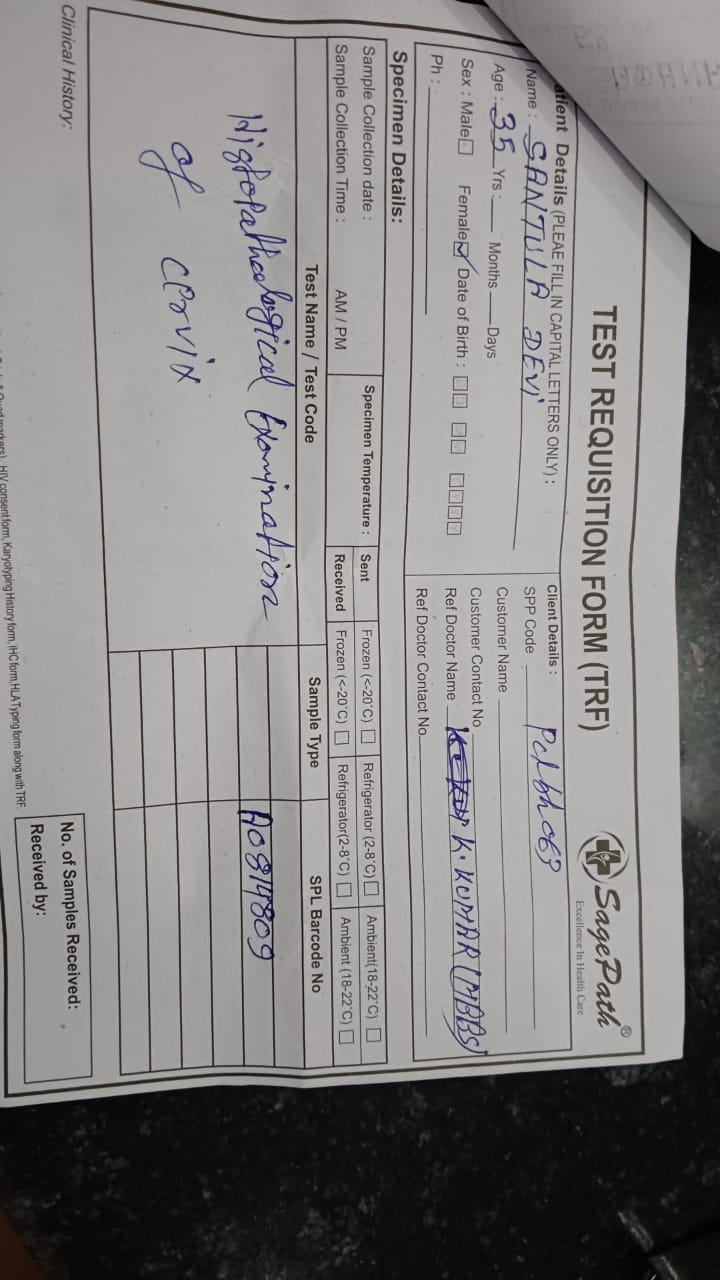 TEST REQUISITION FORM (TRF)
SagePath®
Excellence In Health Care
atient Details (PLEAE FILL IN CAPITAL LETTERS ONLY) :
Name : SANTULA DEVI
Age : 35 Yrs : Months Days
Sex : Male Female ✓ Date of Birth :
Ph :
Client Details :
SPP Code
Customer Name
Customer Contact No
Ref Doctor Name K. KUMAR (MBBS)
Ref Doctor Contact No.
Specimen Details:
Sample Collection date : Specimen Temperature : Sent Frozen (<-20°C) Refrigerator (2-8°C) Ambient(18-22°C)
Sample Collection Time : AM / PM Received Frozen (<-20°C) Refrigerator(2-8°C) Ambient (18-22°C)
Test Name / Test Code Sample Type SPL Barcode No
Histopathological Examination
of cervix
Clinical History:
No. of Samples Received:
Received by:
HIV consent form, Karyotyping History form, IHC form, HLA Typing form along with TRF.